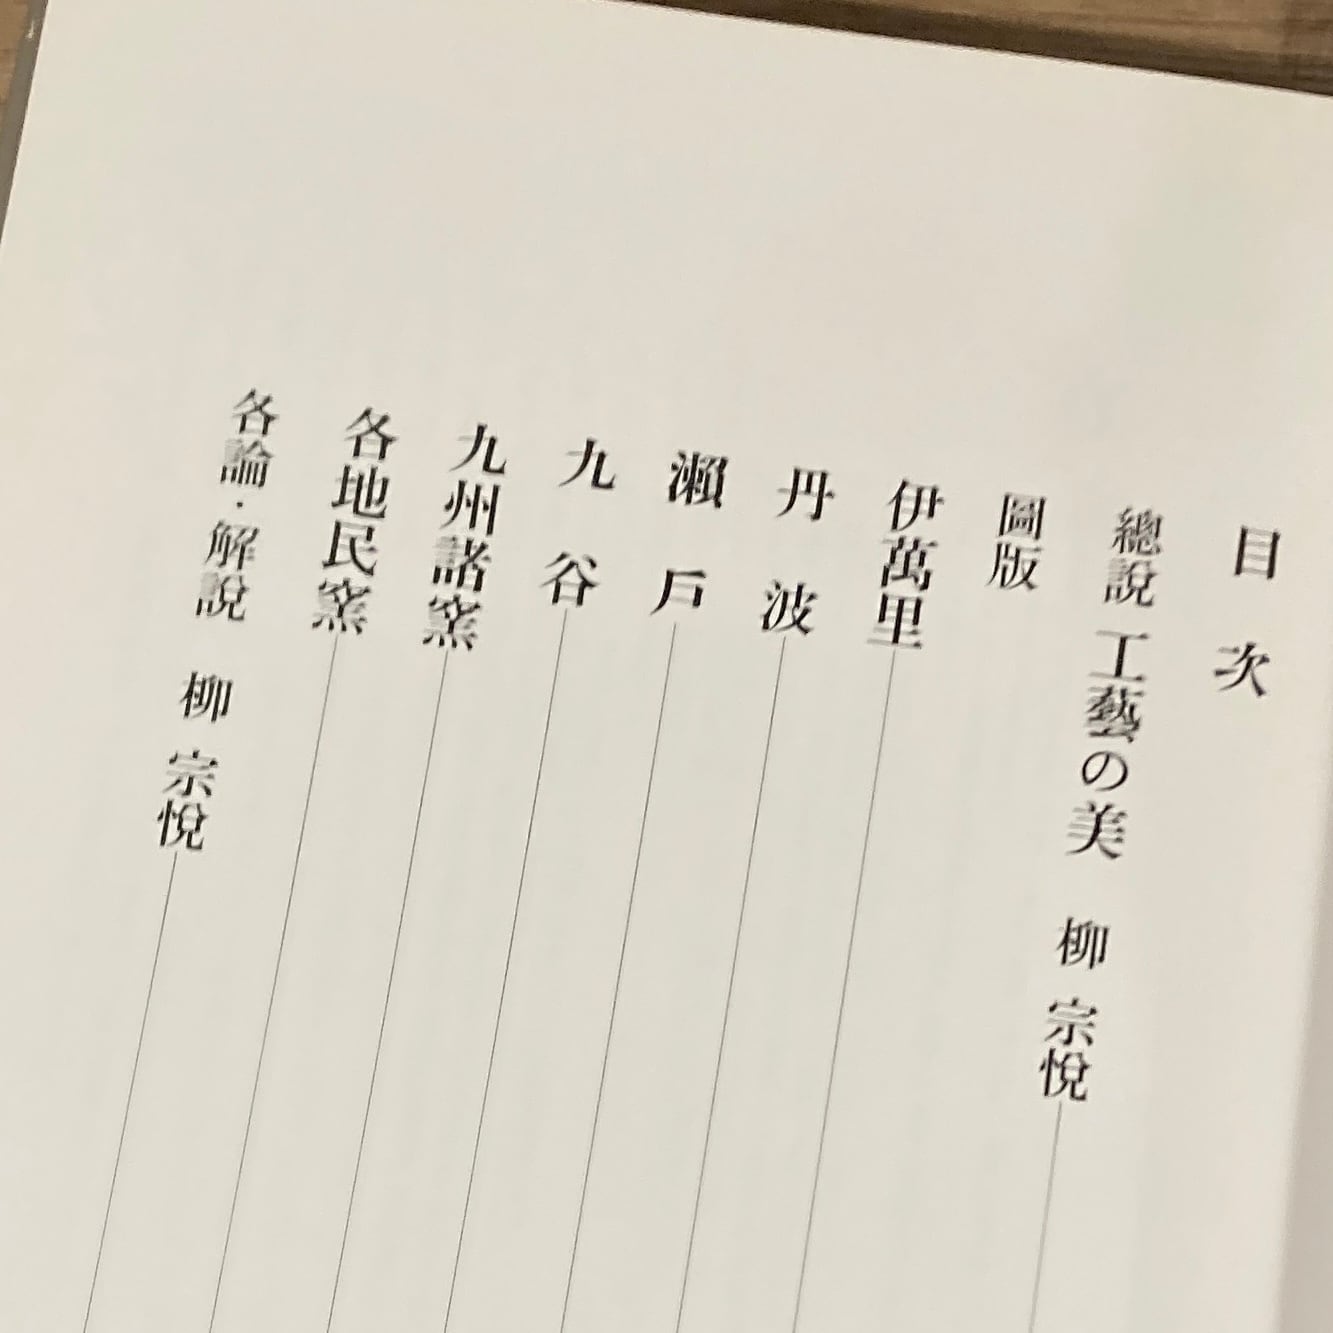 目次
總説 工藝の美 柳 宗悅
圖版
伊萬里
丹波
瀬戸
九谷
九州諸窯
各地民窯
各論・解説 柳 宗悅